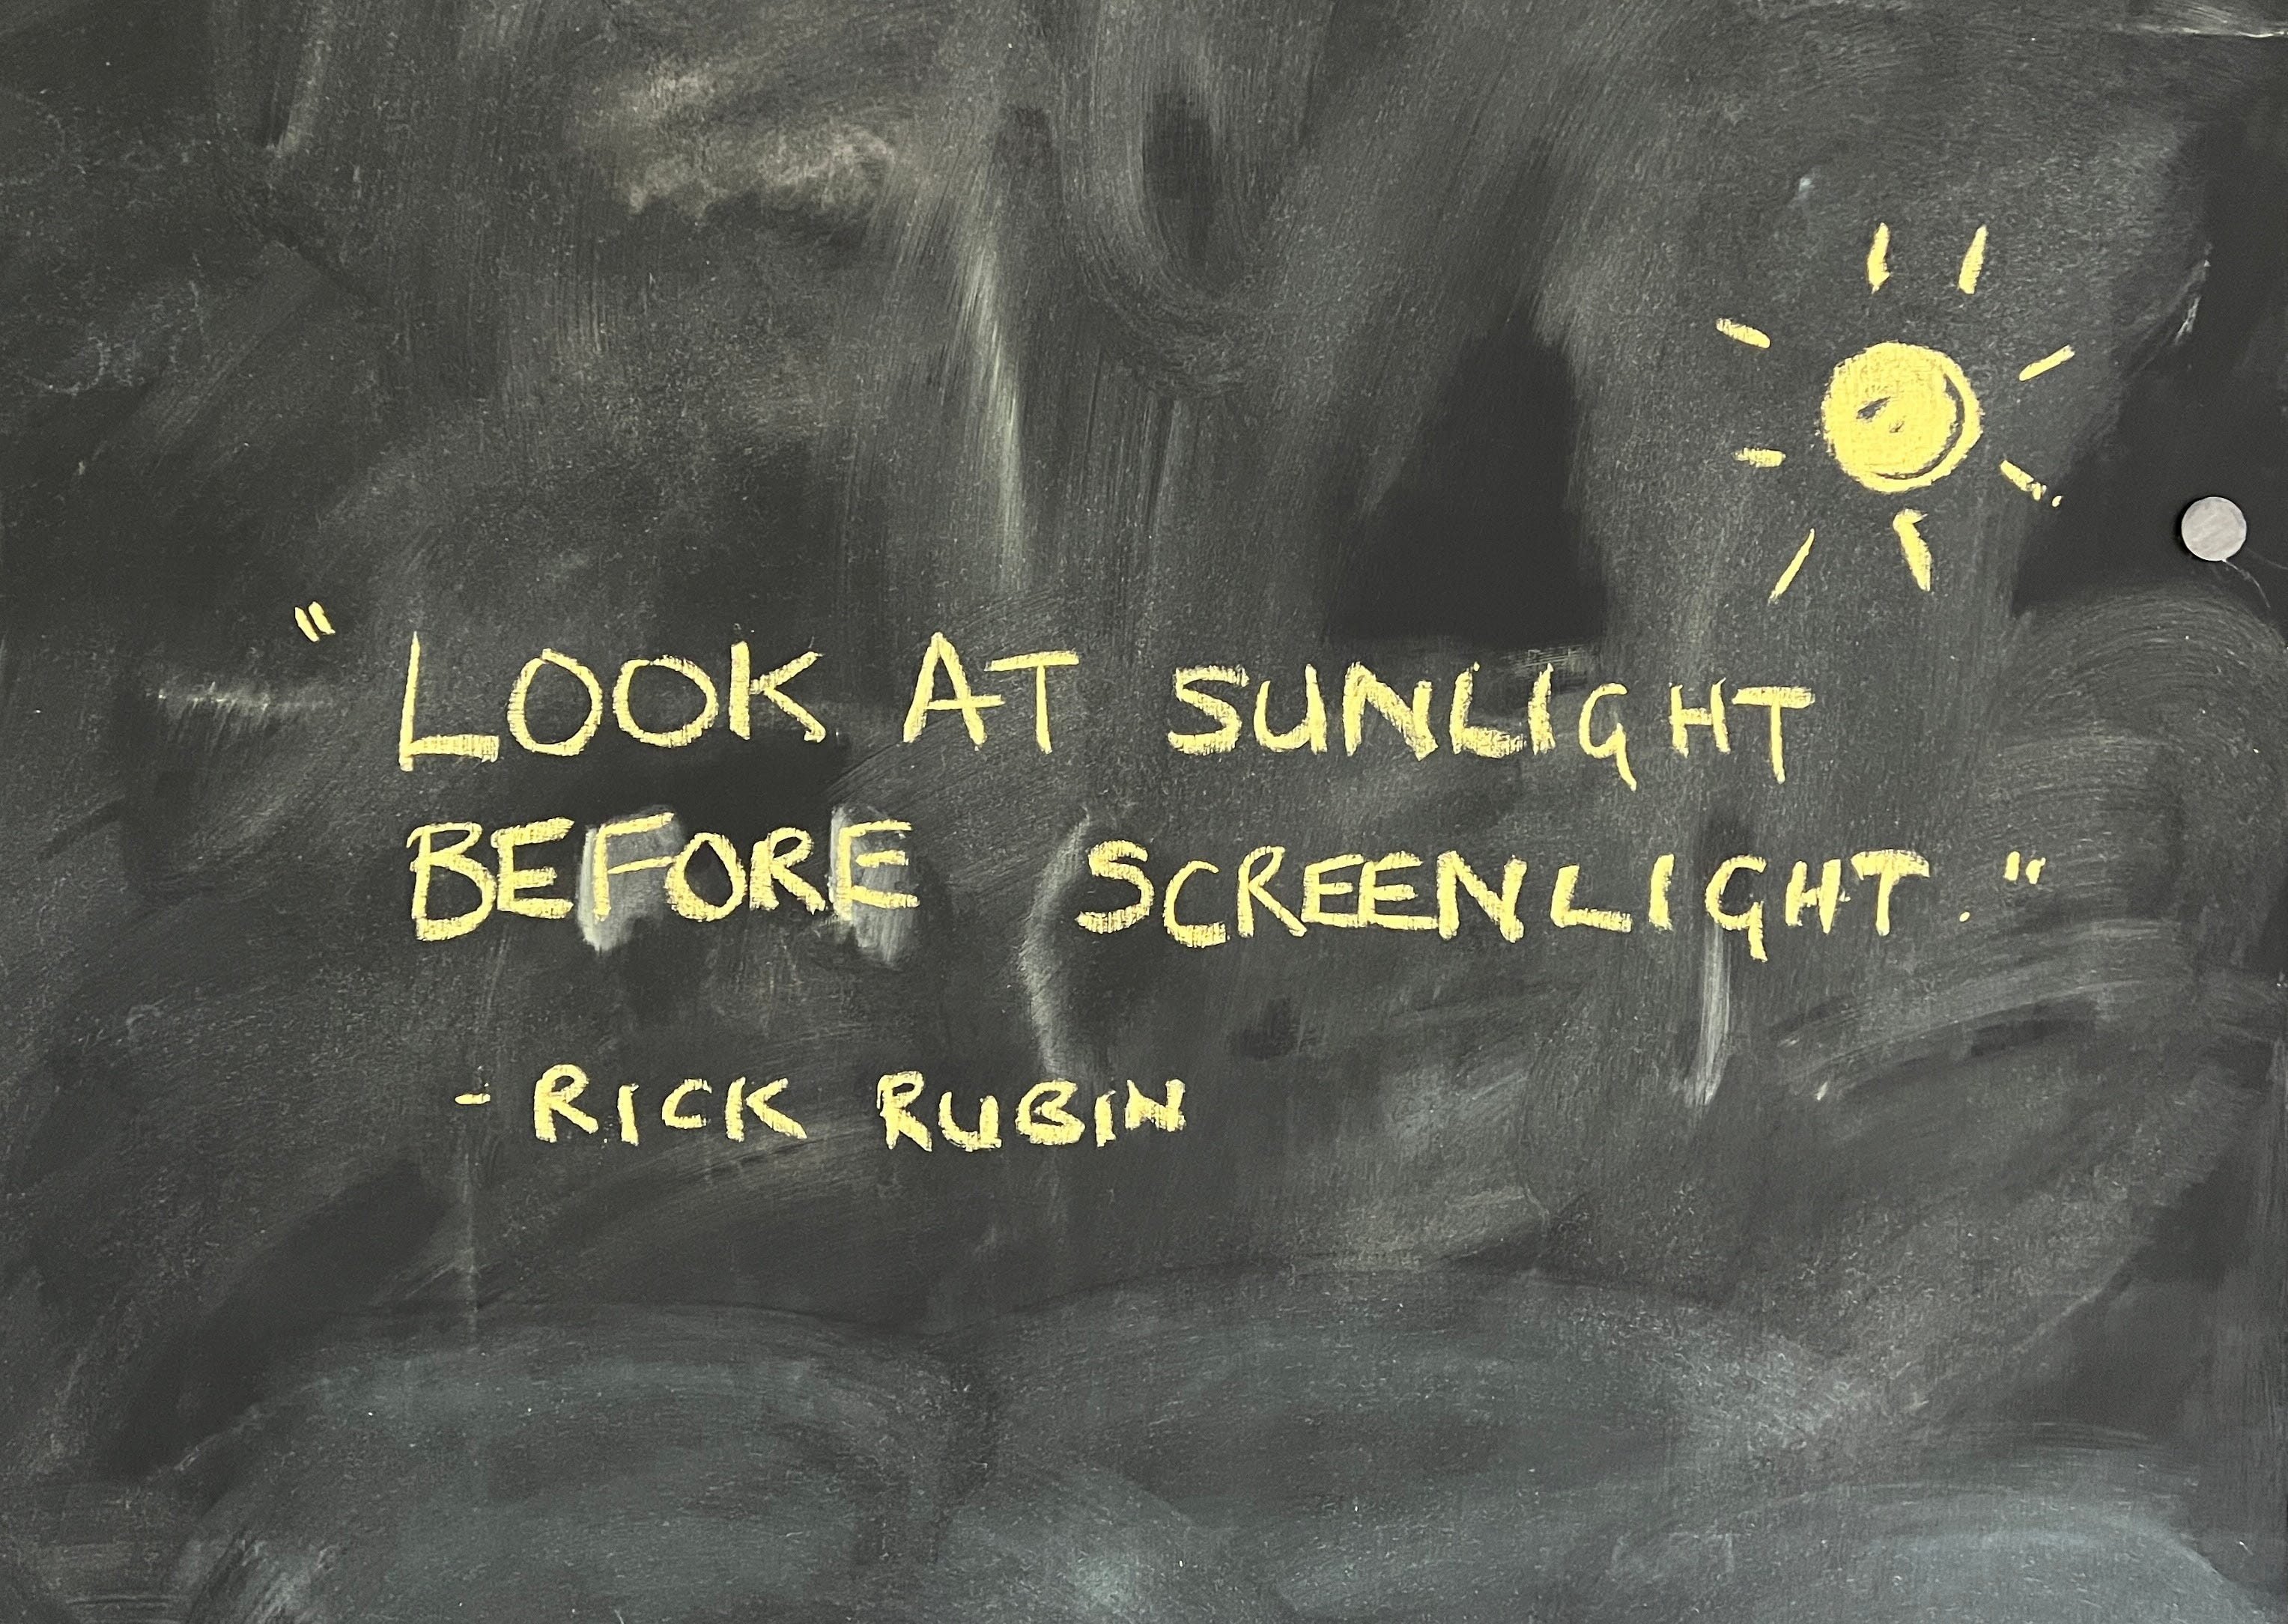 "LOOK AT SUNLIGHT
BEFORE SCREENLIGHT."
- RICK RUBIN